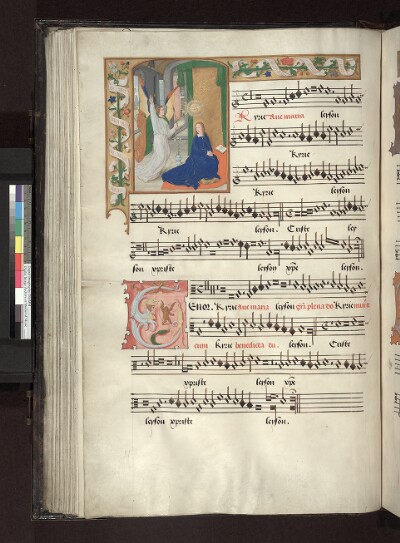 Kyrie Ave maria leyson
Kyrie
Kyrie leyson
Kyrie leyson. Criste ley
son xpriste leyson xpe leyson.
Enor. Kyrie Ave maria leyson gra plena do Kyrie
cum Kyrie benedicta tu. leyson. Criste
xpriste leyson xpe
leyson xpriste leyson.